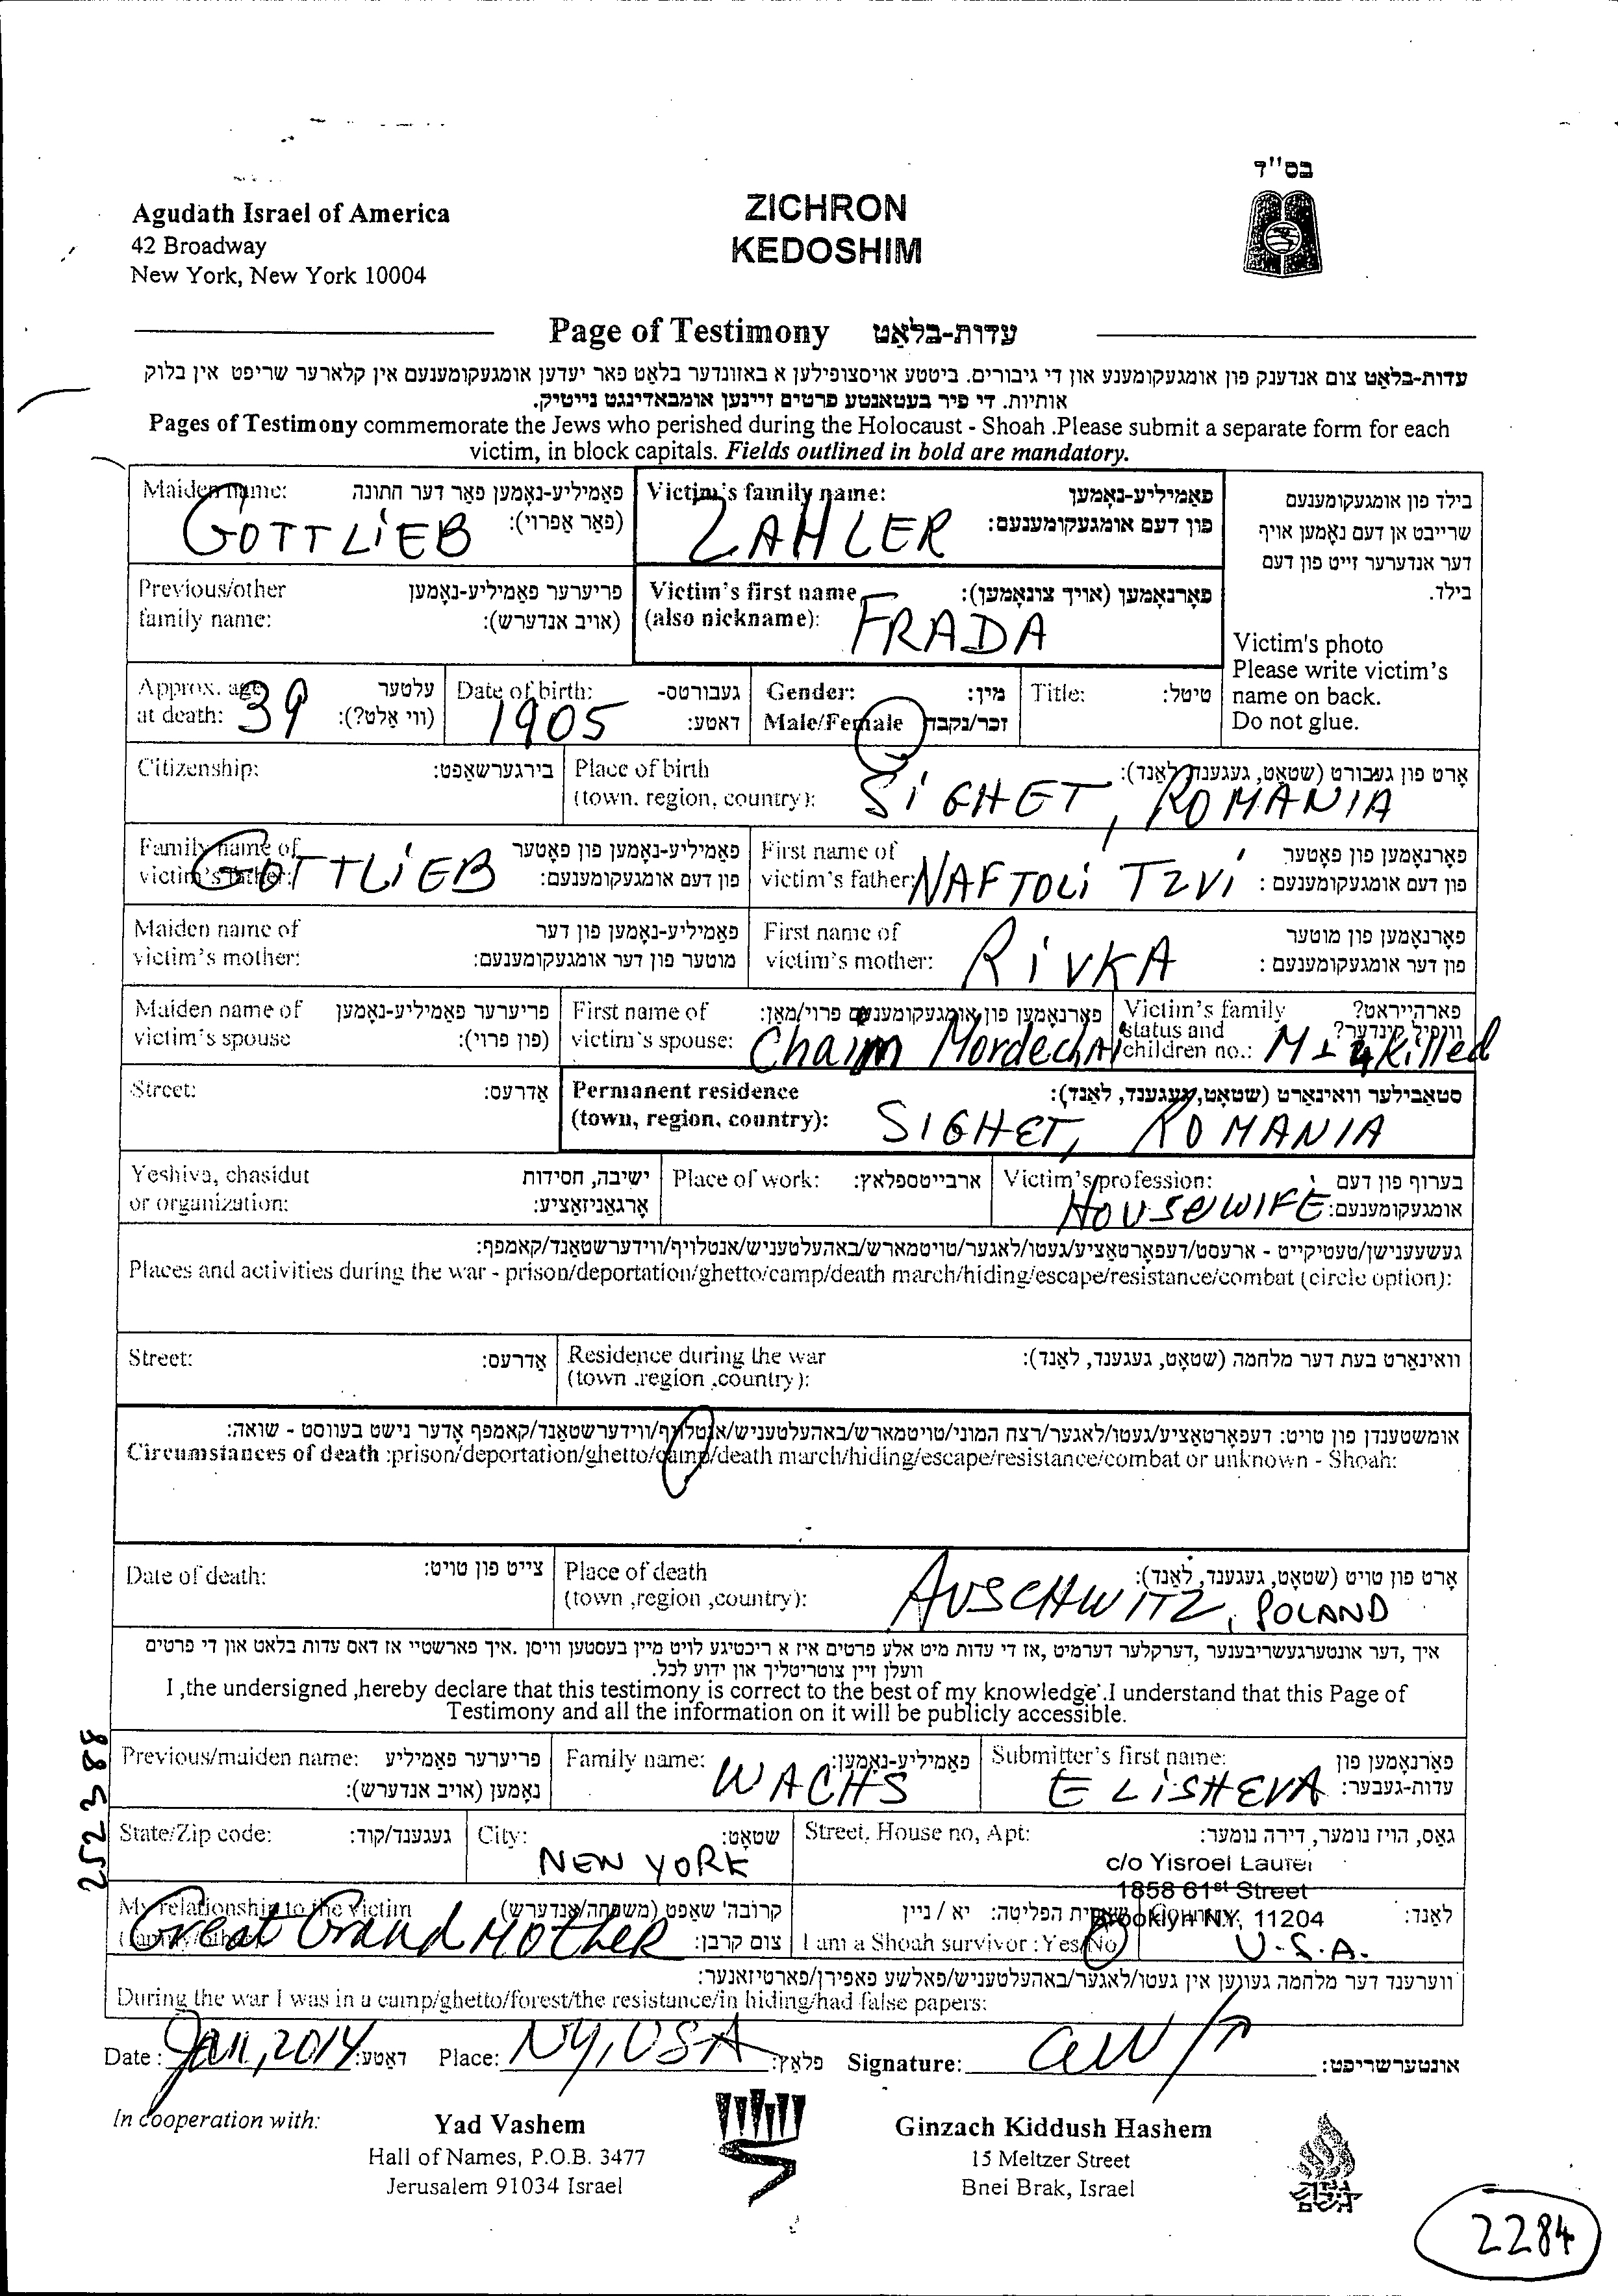 בס"ד
Agudath Israel of America
42 Broadway
New York, New York 10004
ZICHRON
KEDOSHIM
Page of Testimony עדות-בלאַט
עדות-בלאַט צום אנדענק פון אומגעקומענע און די גיבורים. ביטטע אויסצופילען א באזונדער בלאַט פאר יעדען אומגעקומענעם אין קלארער שריפט אין בלוק
אותיות. די פיר בעטאנטע פרטים זיינען אומבאדינגט נייטיק.
Pages of Testimony commemorate the Jews who perished during the Holocaust - Shoah .Please submit a separate form for each
victim, in block capitals. Fields outlined in bold are mandatory.
Maiden name: פאַמיליע-נאָמען פאַר דער חתונה
(פאַר אַפרוי):
GOTTLiEB
Victim's family name: פאַמיליע-נאָמען
פון דעם אומגעקומענעם:
ZAHLER
בילד פון אומגעקומענעם
שרייבט אן דעם נאָמען אויף
דער אנדערער זייט פון דעם
בילד.
Victim's photo
Please write victim's
name on back.
Do not glue.
Previous/other פריערער פאַמיליע-נאָמען
family name: (אויב אנדערש):
Victim's first name פאָרנאָמען (אויך צונאָמען):
(also nickname): FRADA
Approx. age עלטער
at death: 39 (ווי אַלט?):
Date of birth: געבורטס-
דאטע: 1905
Gender: מין:
Male/Female זכר/נקבה
Title: טיטל:
Citizenship: בירגערשאַפט:
Place of birth אָרט פון געבורט (שטאָט, געגענד, לאַנד):
(town, region, country): SiGHET, ROMANIA
Family name of פאַמיליע-נאָמען פון פאָטער
victim's father: פון דעם אומגעקומענעם:
GOTTLiEB
First name of פאָרנאָמען פון פאָטער
victim's father: פון דעם אומגעקומענעם :
NAFTOLi TZVi
Maiden name of פאַמיליע-נאָמען פון דער
victim's mother: מוטער פון דער אומגעקומענעם:
First name of פאָרנאָמען פון מוטער
victim's mother: פון דער אומגעקומענעם :
RiVKA
Maiden name of פריערער פאַמיליע-נאָמען
victim's spouse (פון פרוי):
First name of פאָרנאָמען פון אומגעקומענעם פרוי/מאַן:
victim's spouse: Chaim MordechAi
Victim's family פארהייראט?
status and וויפיל קינדער?
children no.: M 4 killed
Street: אַדרעס:
Permanent residence סטאַבילער וואוינאָרט (שטאָט, געגענד, לאַנד):
(town, region, country): SIGHET, ROMANIA
Yeshiva, chasidut ישיבה, חסידות
or organization: אָרגאַניזאַציע:
Place of work: ארבייטספלאץ:
Victim's profession: בערוף פון דעם
אומגעקומענעם: HOUSEWIFE
געשעענישן/טעטיקייט - ארעסט/דעפּאָרטאַציע/געטו/לאַגער/טויטמארש/באהעלטעניש/אנטלויף/ווידערשטאַנד/קאמפף:
Places and activities during the war - prison/deportation/ghetto/camp/death march/hiding/escape/resistance/combat (circle option):
Street: אַדרעס:
Residence during the war וואוינאָרט בעת דער מלחמה (שטאָט, געגענד, לאַנד):
(town ,region ,country):
אומשטענדן פון טויט: דעפּאָרטאַציע/געטו/לאַגער/רצח המוני/טויטמארש/באהעלטעניש/אנטלויף/ווידערשטאַנד/קאמפף אָדער נישט בעווסט - שואה:
Circumstances of death :prison/deportation/ghetto/camp/death march/hiding/escape/resistance/combat or unknown - Shoah:
Date of death: צייט פון טויט:
Place of death אָרט פון טויט (שטאָט, געגענד, לאַנד):
(town ,region ,country): AUSCHWITZ, POLAND
איך ,דער אונטערגעשריבענער ,דערקלער דערמיט ,אז די עדות מיט אלע פרטים איז א ריכטיגע לויט מיין בעסטען וויסן .איך פארשטיי אז דאס עדות בלאט און די פרטים
וועלן זיין צוטריטליך און ידוע לכל.
I ,the undersigned ,hereby declare that this testimony is correct to the best of my knowledge .I understand that this Page of
Testimony and all the information on it will be publicly accessible.
252388
Previous/maiden name: פריערער פאַמיליע
נאָמען (אויב אנדערש):
Family name: פאַמיליע-נאָמען:
WACHS
Submitter's first name: פאָרנאָמען פון
עדות-געבער: ELiSHEVA
State/Zip code: געגענד/קוד:
City: שטאָט:
NEW YORK
Street, House no, Apt: גאַס, הויז נומער, דירה נומער:
c/o Yisroel Laufer
1858 61st Street
Brooklyn NY, 11204
My relationship to the victim קרובה' שאַפט (משפחה/אנדערש)
(family/other): צום קרבן:
Great Grand MOTheR
שארית הפליטה: יא / ניין
I am a Shoah survivor :Yes/No
Country: לאַנד:
U.S.A.
ווערענד דער מלחמה געווען אין געטו/לאַגער/באהעלטעניש/פאלשע פאפירן/פארטיזאנער:
During the war I was in a camp/ghetto/forest/the resistance/in hiding/had false papers:
Date : Jan, 2014 דאַטע: Place: NY, USA פלאַץ: Signature: אונטערשריפט:
In cooperation with:
Yad Vashem
Hall of Names, P.O.B. 3477
Jerusalem 91034 Israel
Ginzach Kiddush Hashem
15 Meltzer Street
Bnei Brak, Israel
2284